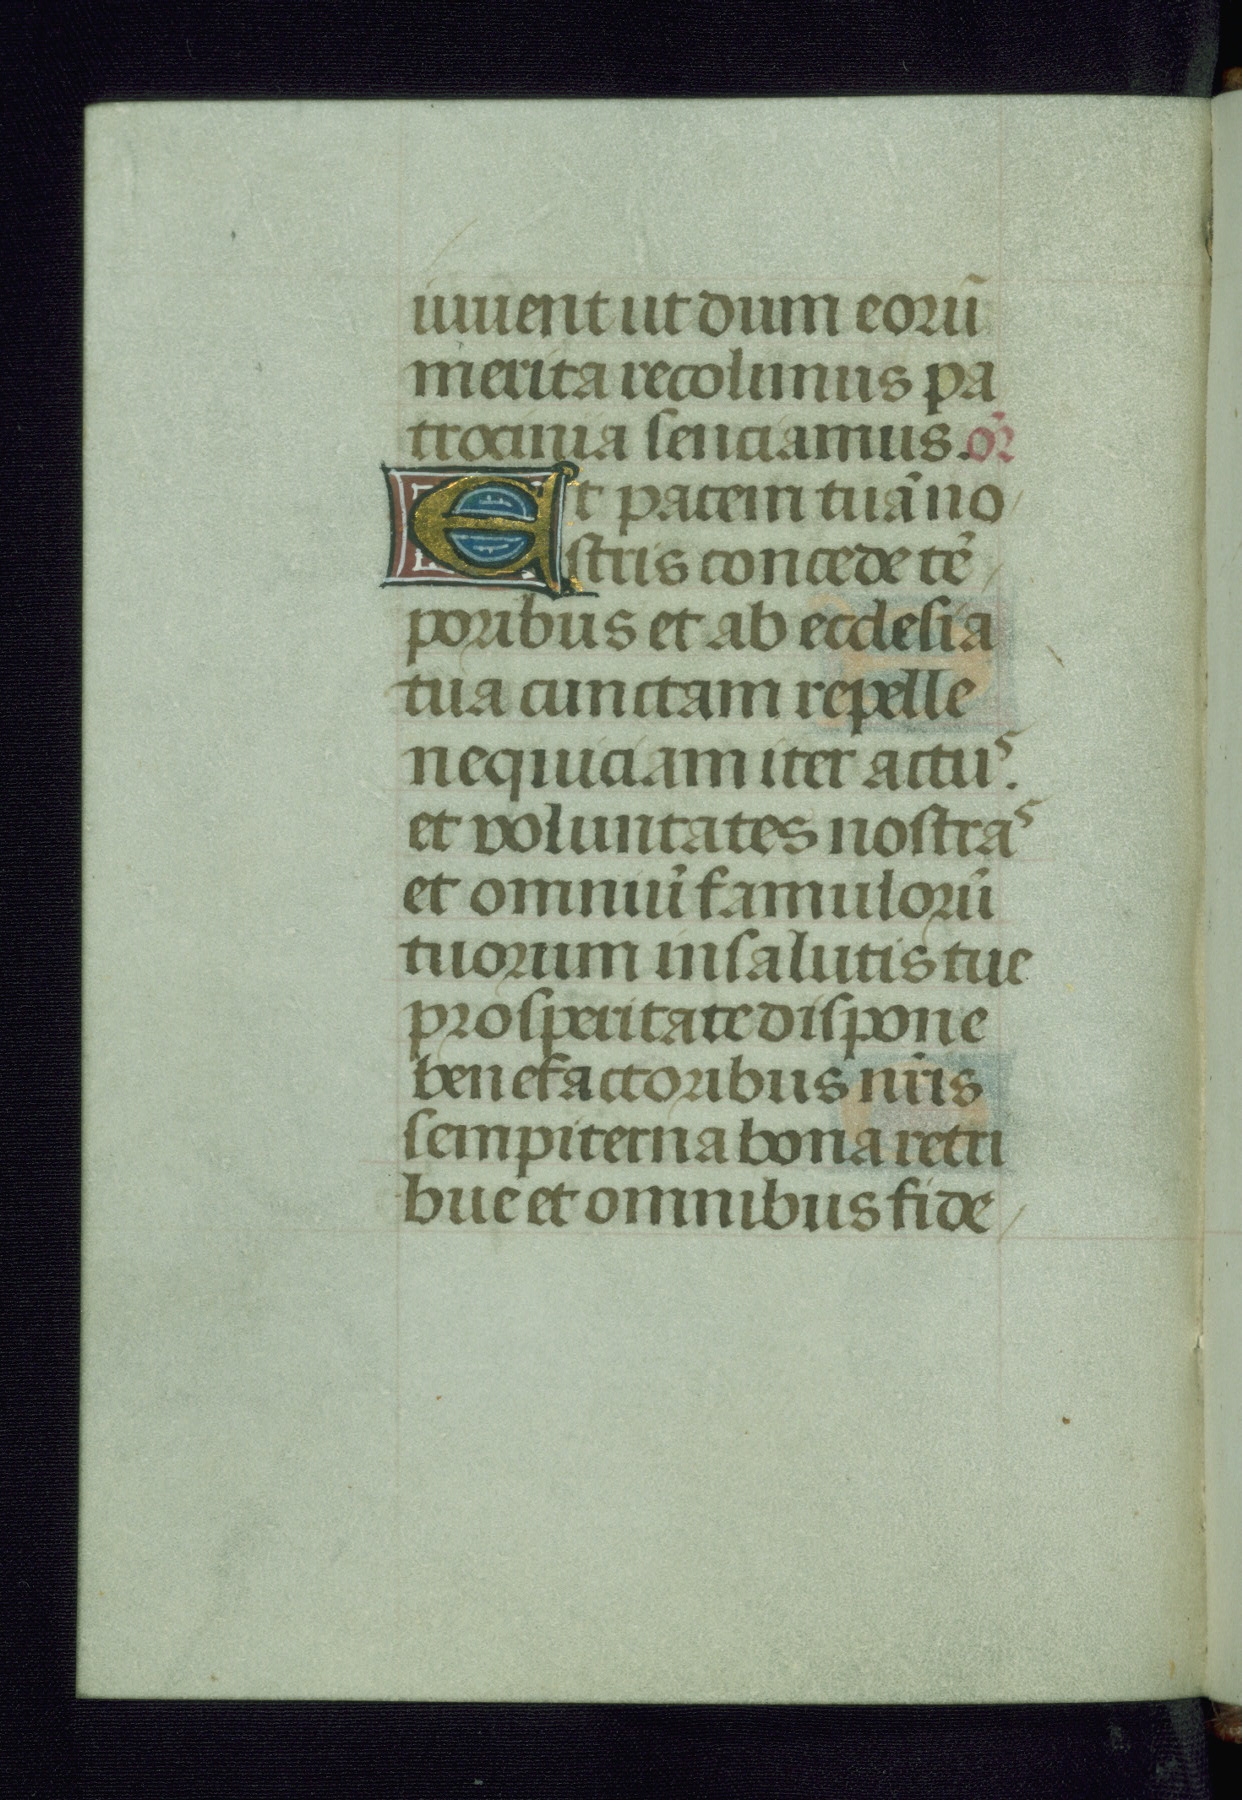 iuuent ut dum eorū
merita recolimus pa
trocinia senciamus. or̄
Et pacem tuā no
stris concede tē
poribus et ab ecclesia
tua cunctam repelle
nequiciam iter actus.
et voluntates nostras
et omniū famulorū
tuorum in salutis tue
prosperitate dispone
benefactoribus nr̄is
sempiterna bona retri
bue et omnibus fide